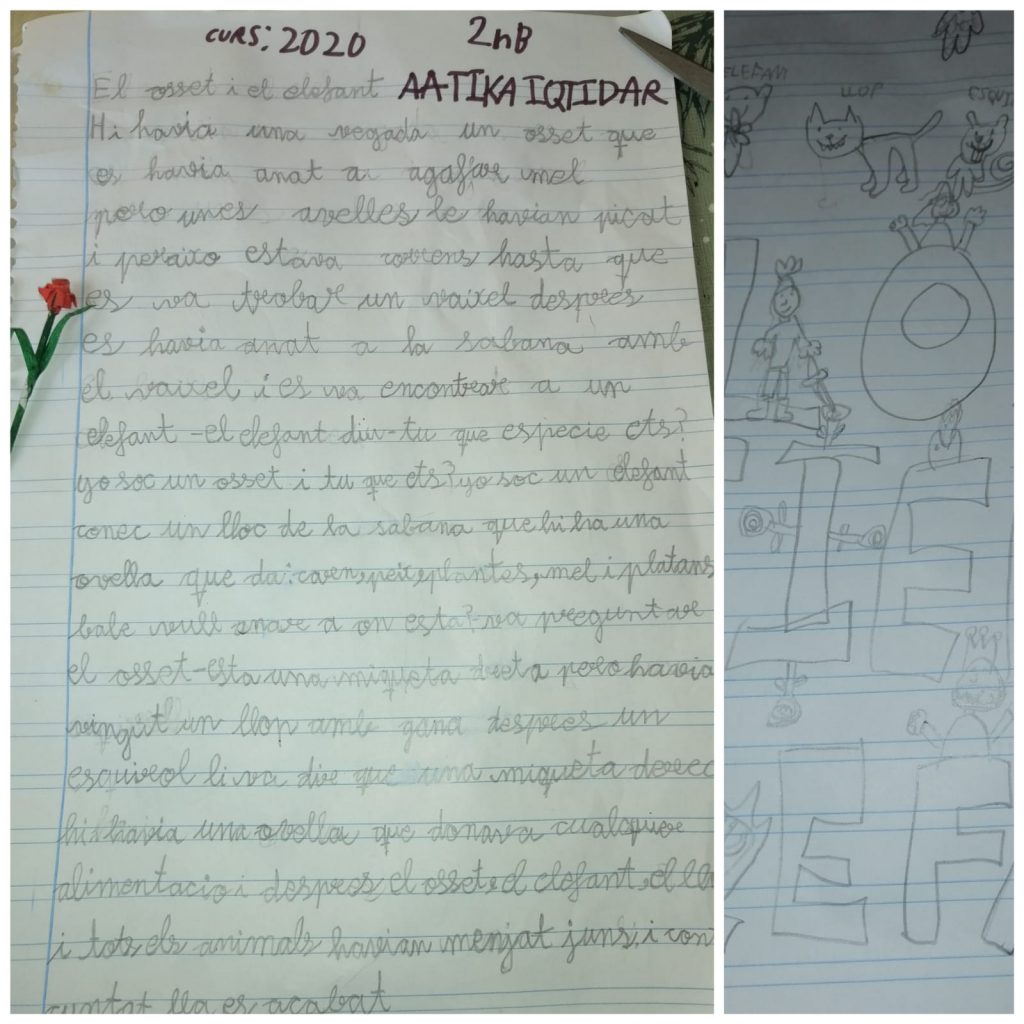 CURS: 2020 2nB
El osset i el elefant AATIKA IQTIDAR
Hi havia una vegada un osset que
es havia anat a agaffar mel
pero unes avelles le havian picat
i peraixo estava correns hasta que
es va trobar un vaixel despres
es havia anat a la sabana amb
el vaixel i es va encontrar a un
elefant -el elefant diu-tu que especie ets?
yo soc un osset i tu que ets? yo soc un elefant
conec un lloc de la sabana que hi ha una
ovella que da: caren, peix, plantes, mel i platans
bale vull anare a on esta?-va preguntar
el osset-esta una miqueta dreta pero havia
vingut un llop amb gana despres un
esquirol li va dire que una miqueta derec
hi havia una ovella que donava cualquier
alimentacio i despres el osset, el elefant, el llo
i tots els animals havian menjat juns, i con
cuntat lla es acabat
ELEFAN
LLOP
ESQUI
I E
E F